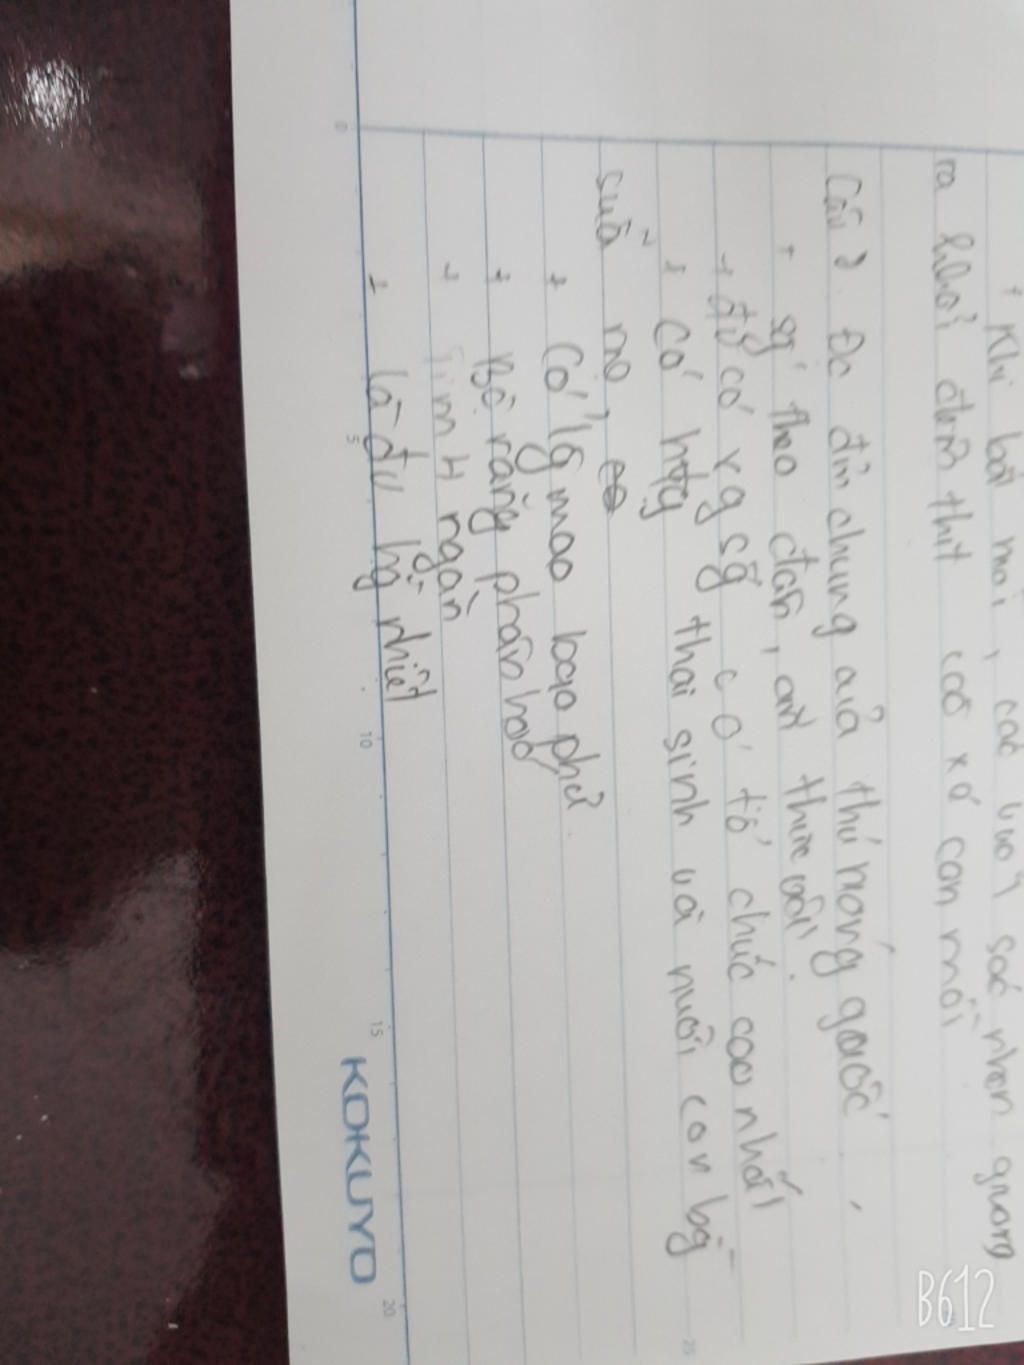 + Khi bắt mồi, các vuốt sắc nhọn giương
ra khỏi đệm thịt cào xé con mồi
Câu 2. Đc điểm chung của thú móng guốc
+ sg' theo đàn, ăn thức vật.
+ đv có xg sg có tổ chức cao nhất
+ Có htg thai sinh và nuôi con bg
sữa mẹ,
+ Có lg mao bao phủ.
+ Bộ răng phân hoá
+ Tim 4 ngăn
+ là đv hg nhiệt
0
5
10
15
20
KOKUYO
B612